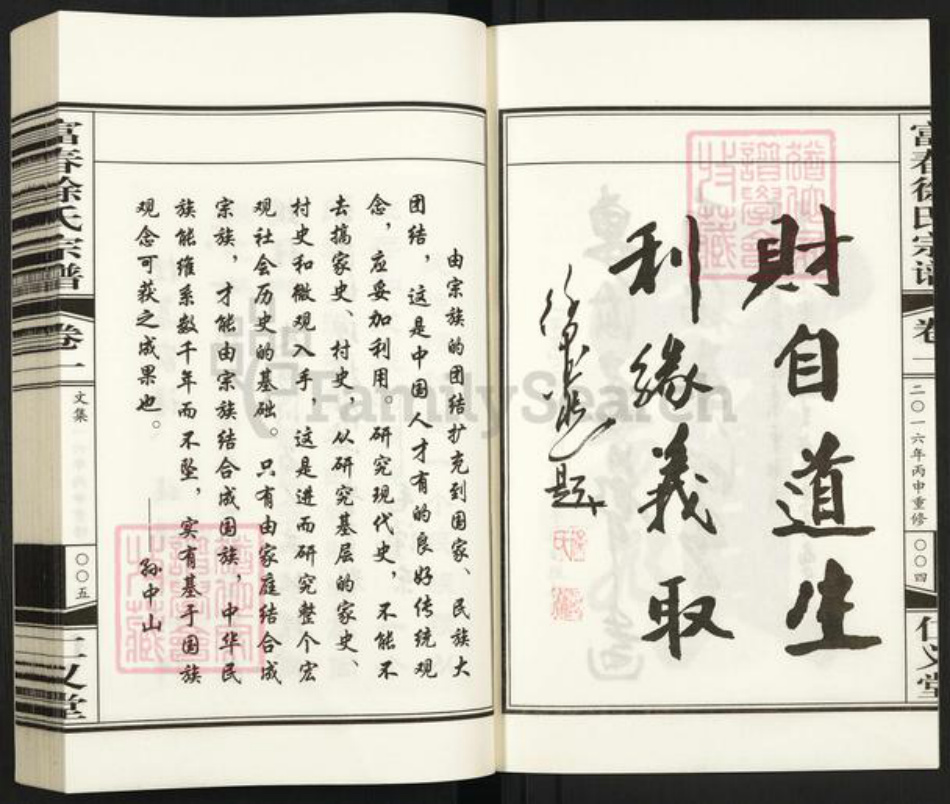 富春徐氏宗谱
卷一
二〇一六年丙申重修
〇〇四
仁义堂
財自道生
利緣義取
題
由宗族的团结扩充到国家、民族大
团结，这是中国人才有的良好传统观
念，应妥加利用。研究现代史，不能不
去搞家史、村史，从研究基层的家史、
村史和微观入手，这是进而研究整个宏
观社会历史的基础。只有由家庭结合成
宗族，才能由宗族结合成国族，中华民
族能维系数千年而不坠，实有基于国族
观念可获之成果也。
——孙中山
富春徐氏宗谱
卷一
文集
〇〇五
仁义堂
FamilySearch